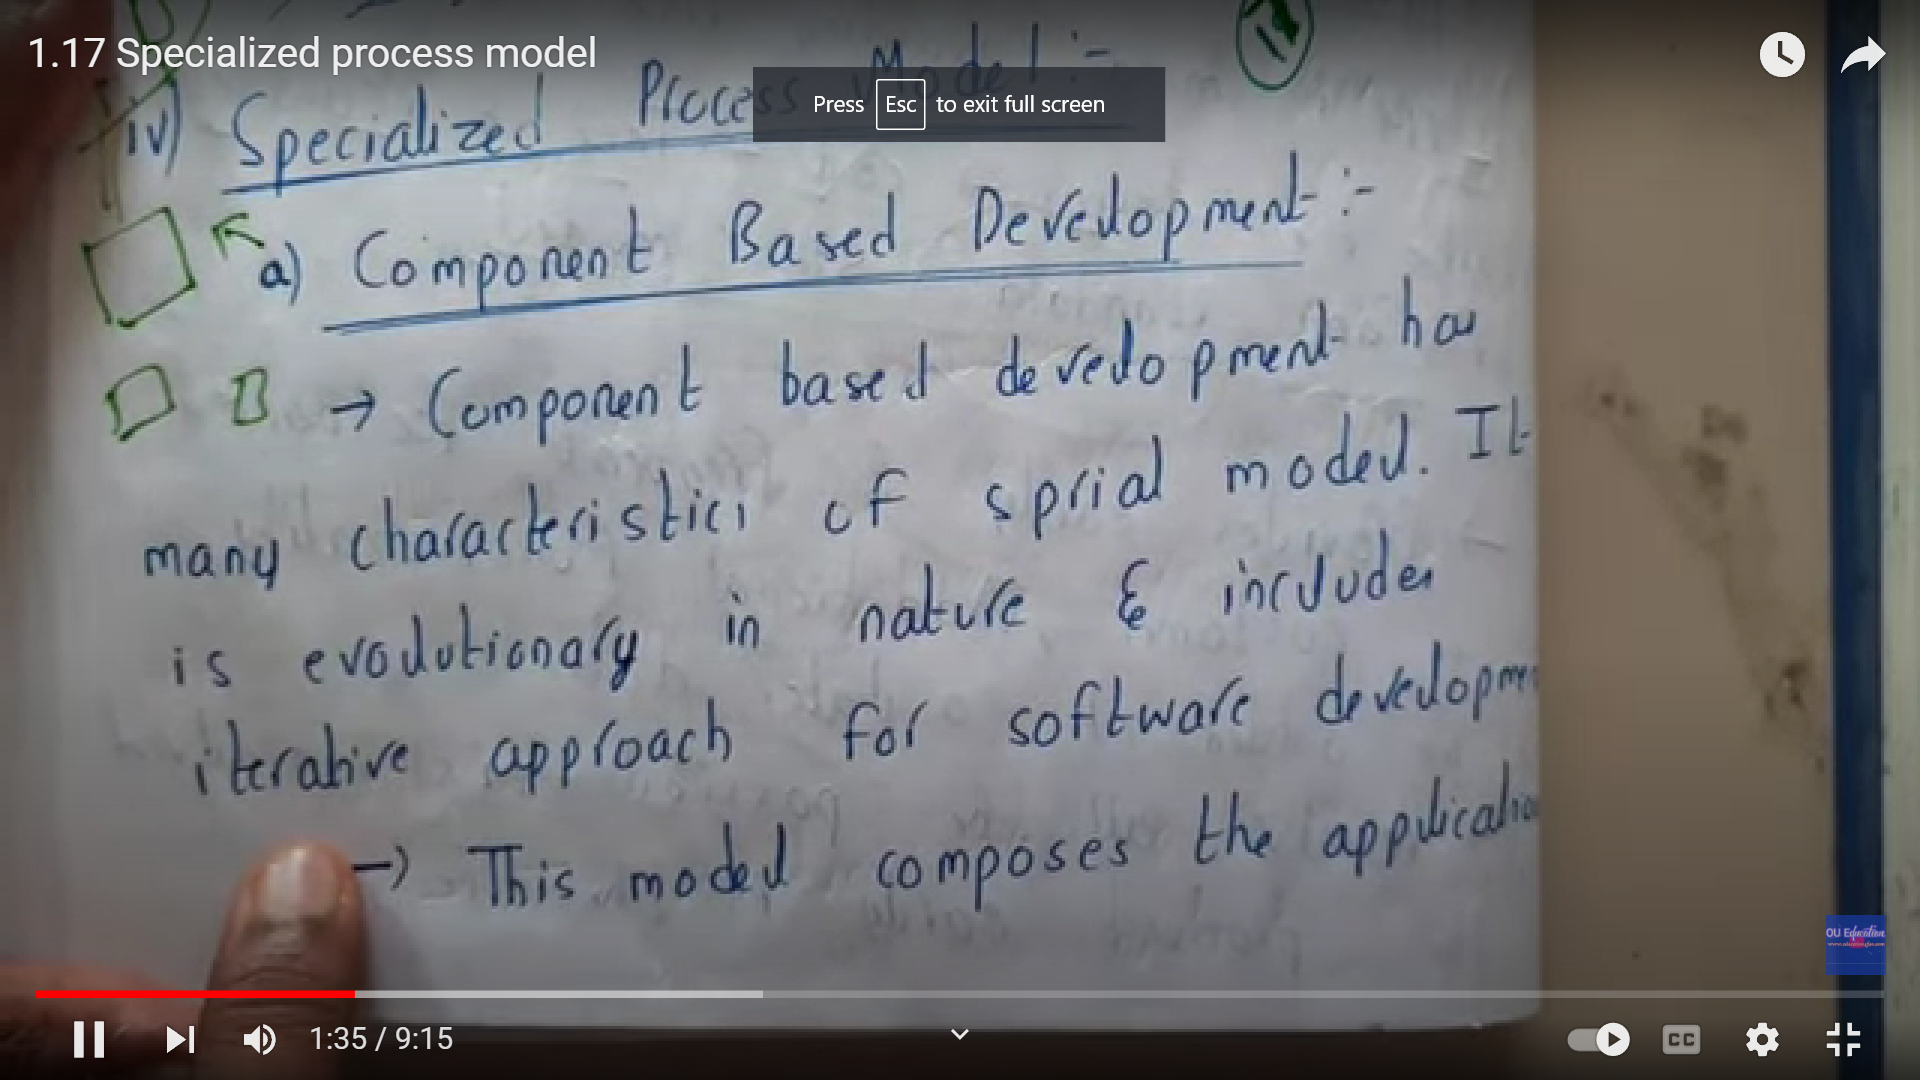 1.17 Specialized process model
Press Esc to exit full screen
iv) Specialized Process Model :-
a) Component Based Development :-
→ Component based development has
many characteristics of sprial model. It
is evolutionary in nature & includes
iterative approach for software developme
→ This model composes the applicatio
OU Education
1:35 / 9:15
CC